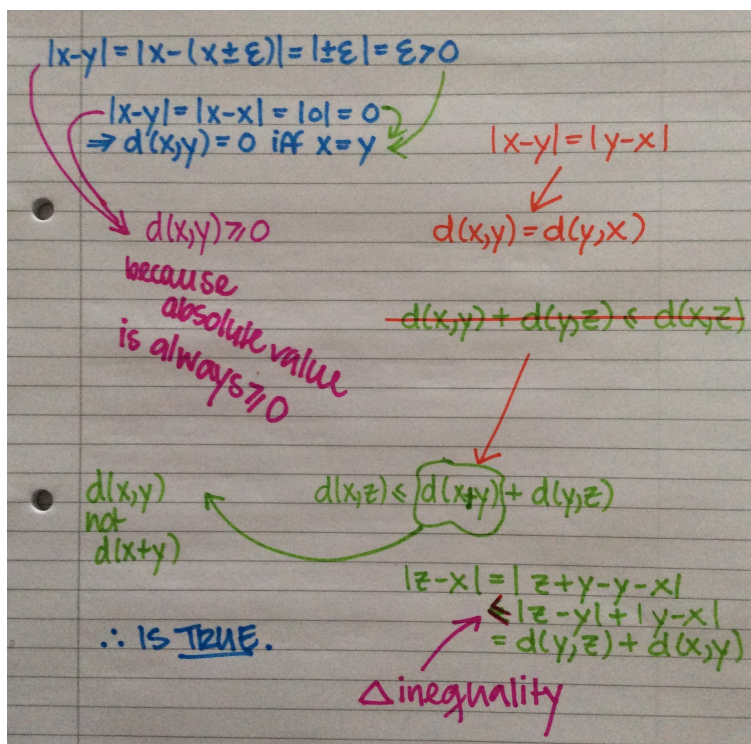 |x-y|=|x-(x±ε)|=|±ε|=ε>0
|x-y|=|x-x|=|0|=0
⇒ d(x,y)=0 iff x=y
|x-y|=|y-x|
d(x,y)⩾0
d(x,y)=d(y,x)
because
absolute value
is always⩾0
d(x,y)+d(y,z)⩽d(x,z)
d(x,y)
not
d(x+y)
d(x,z)⩽d(x+y)+d(y,z)
|z-x|=|z+y-y-x|
⩽|z-y|+|y-x|
=d(y,z)+d(x,y)
∴ IS TRUE.
△inequality